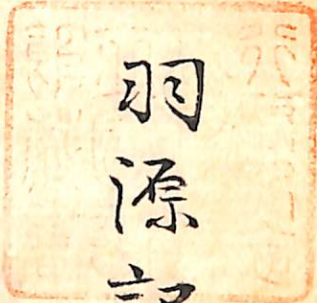 羽源記